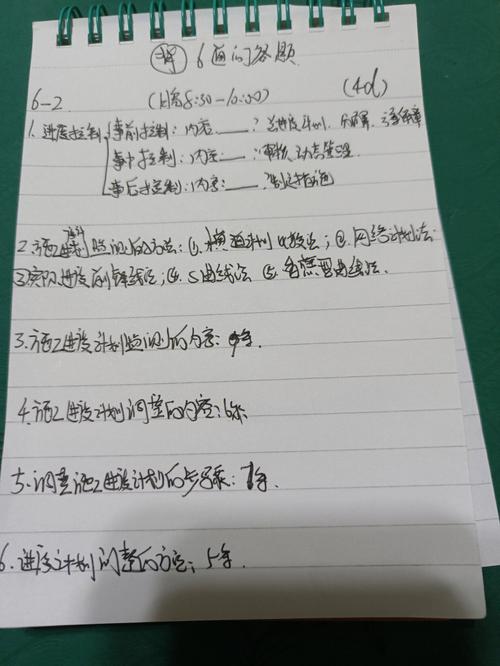 6道问答题
6-2 (上高8:30-10:00) (4d)
1. 进度控制 事前控制：内容 ___ ? 总进度计划、分解
事中控制：内容 ___ : 审核、动态管理
事后控制：内容 ___ ? 制定措施
2. 施工进度计划监测的方法：①. 横道计划比较法；②. 网络计划法
③实际进度前锋线法；④. S曲线法 ⑤. 香蕉型曲线法.
3. 施工进度计划监测的内容：条.
4. 施工进度计划调整的内容：6条
5. 调整施工进度计划的步骤：7条.
6. 进度计划调整的方法：5条.